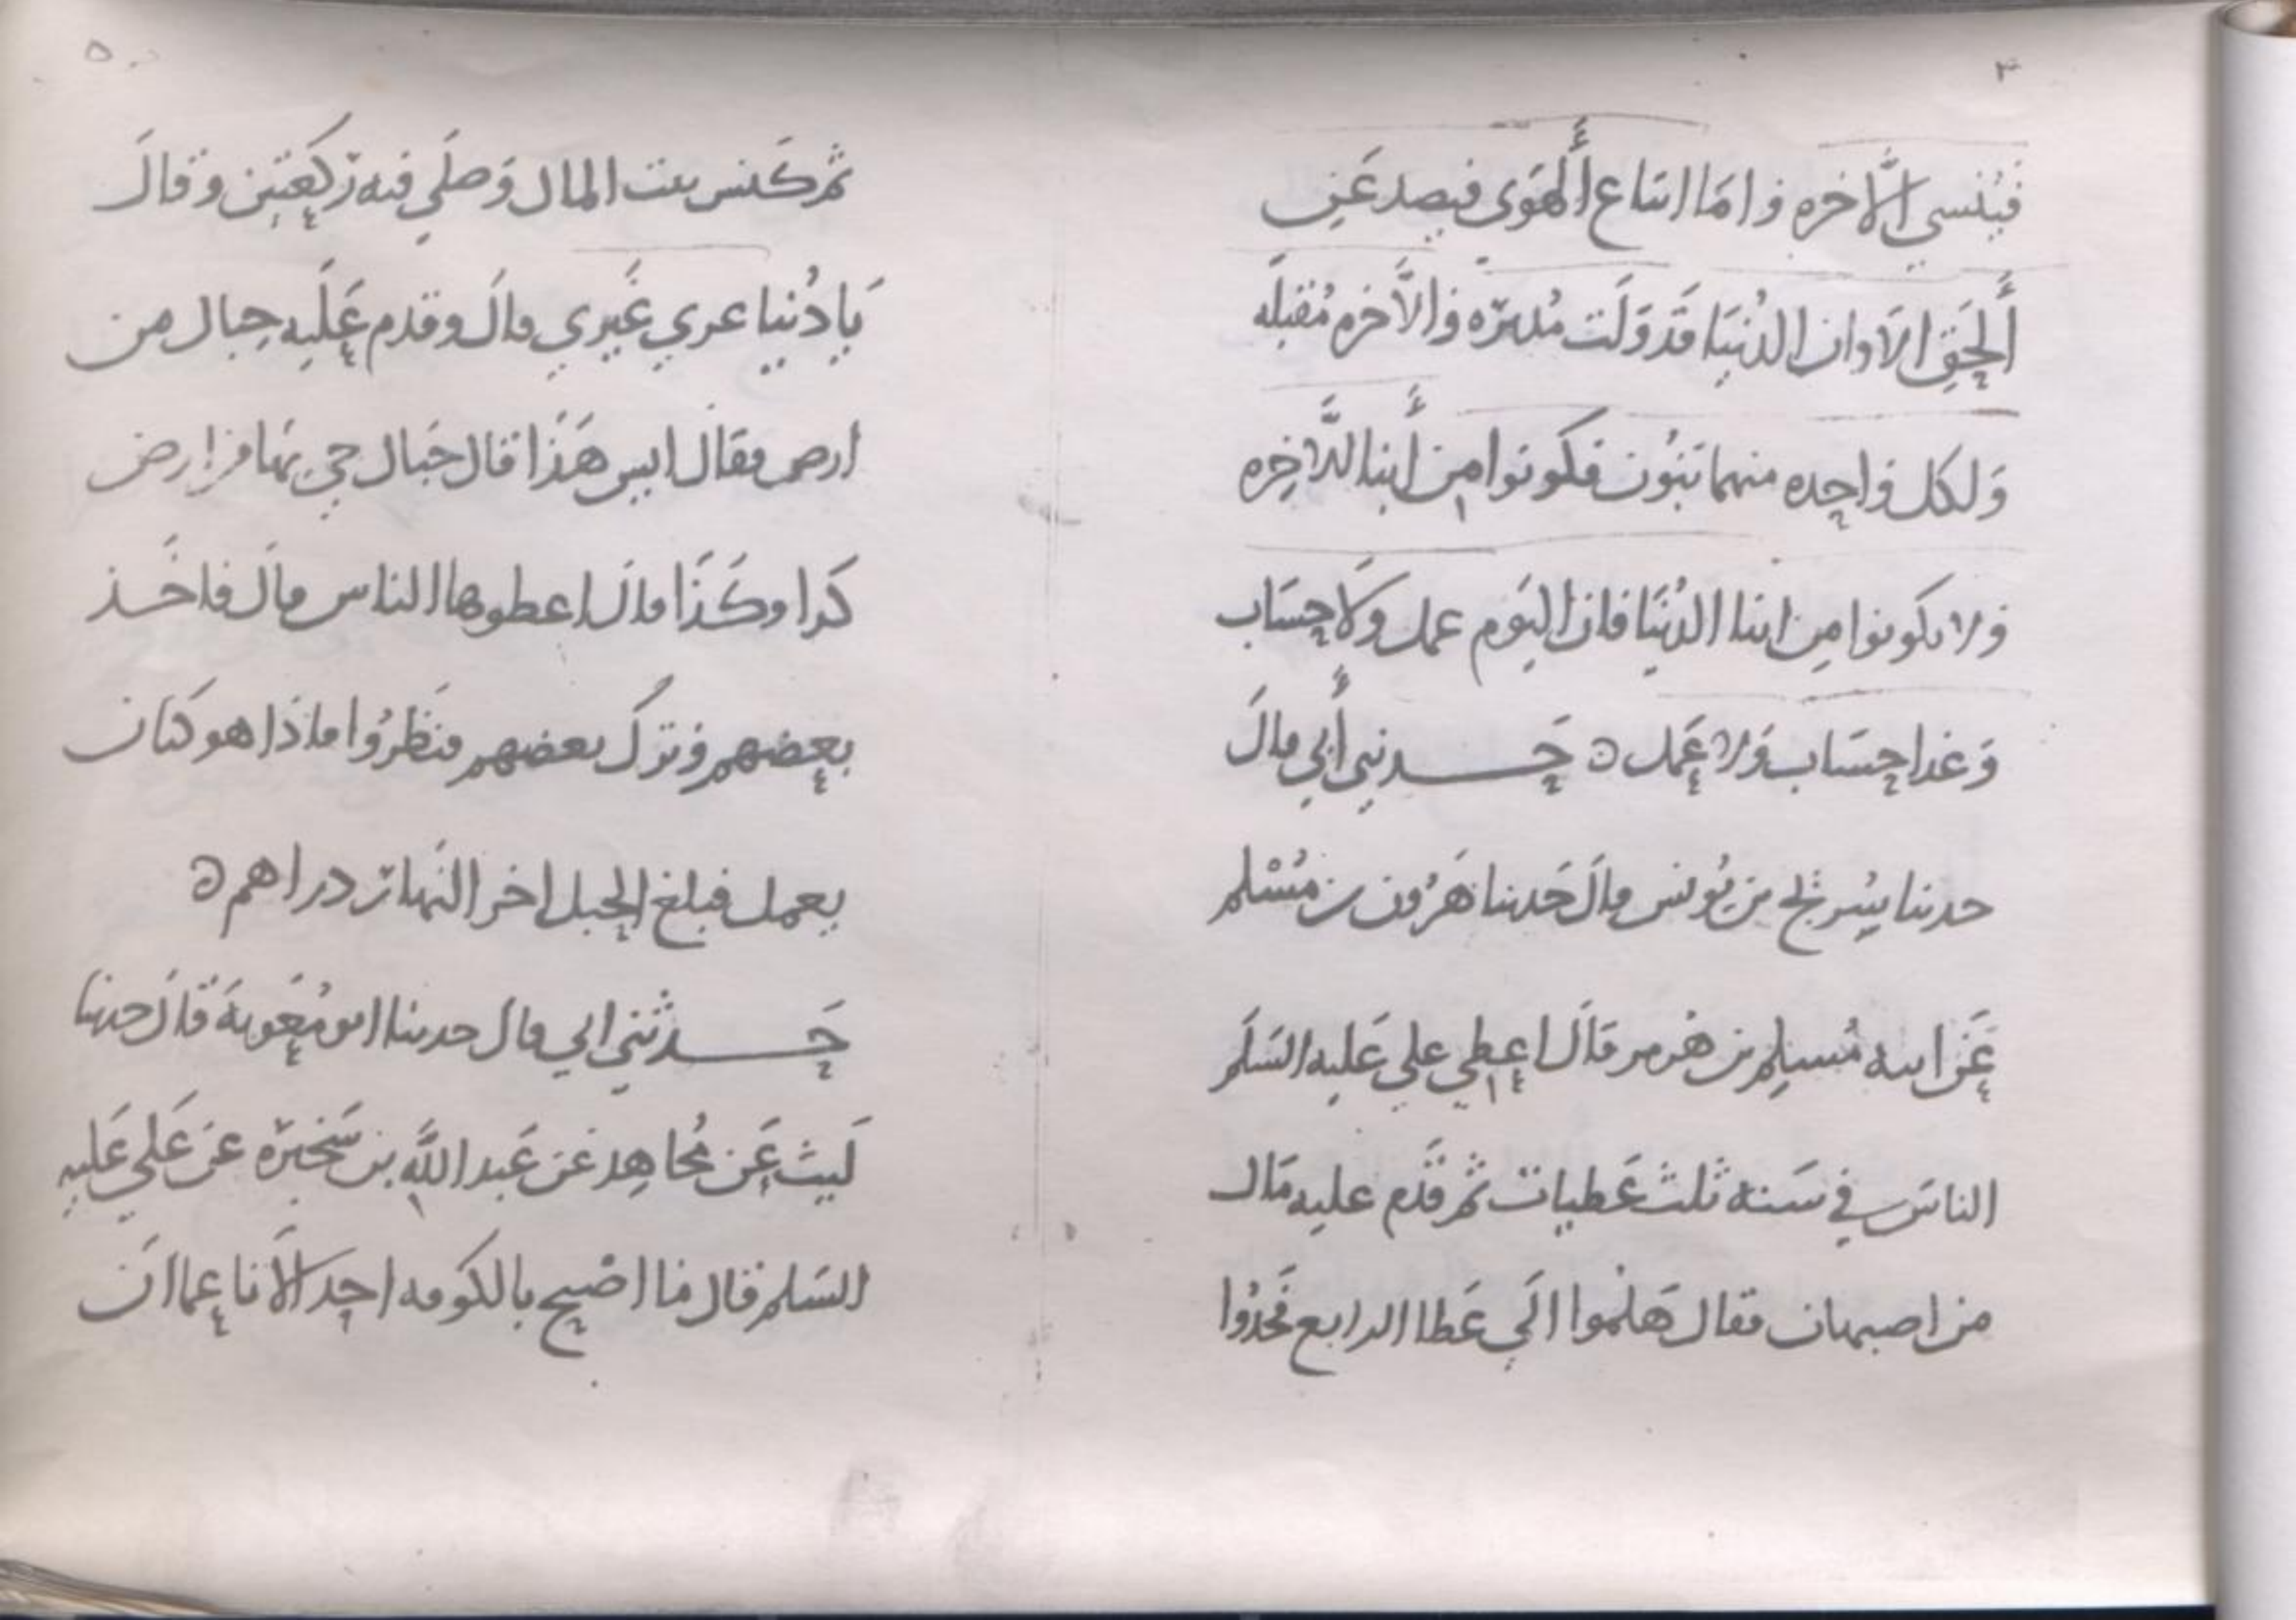 ٤
فيُنسي الآخره واما اتباع الهَوى فيصد عَن
الحَق الا وان الدُنيَا قَد وَلَت مُدبرَه والآخره مُقبلَه
وَلكل واحده منهما بَنُون فكونوا مِن أَبنا الآخِره
ولا تكونوا مِن ابنا الدُنيَا فان اليَوم عمل وَلا حِسَاب
وَغدا حِسَاب وَلا عَمل ه حَدثني أَبي قالَ
حدثنا سُريج بن يُونس قالَ حَدثنا هَرُون بن مُسْلم
عَن ابيه مُسلِم بن هُرمر قالَ اعطي علي عَليه السَلَم
الناسَ في سَنه ثلث عَطيات ثم قَدم عليه مَال
من اصبهان فقال هَلُموا الَي عَطا الرابع فخُذُوا
٥
ثم كَنس بيت المال وَصلَي فيه رَكعَتين وقالَ
يَا دُنيا غري غَيري قالَ وقدم عَلَيه حِبال من
ارض فقالَ ايس هَذَا قال حَبال جي بهَا من ارض
كَذا وكَذَا قالَ اعطوها الناس قالَ فاخَذ
بعضهم وتركَ بعضهم فنَظرُوا ماذَا هو كتان
يعمل فبلغ الحبل اخر النَهار دراهم ه
حَدثني ابي قال حدثنا ابو مُعَويةَ قالَ حدثنا
لَيث عَن مُجاهِد عَن عَبد اللَّهِ بن سَخبرَه عَن عَلي عَليهِ
السَلم قال ما اصْبح بالكوفه احد الا ناعما انَ